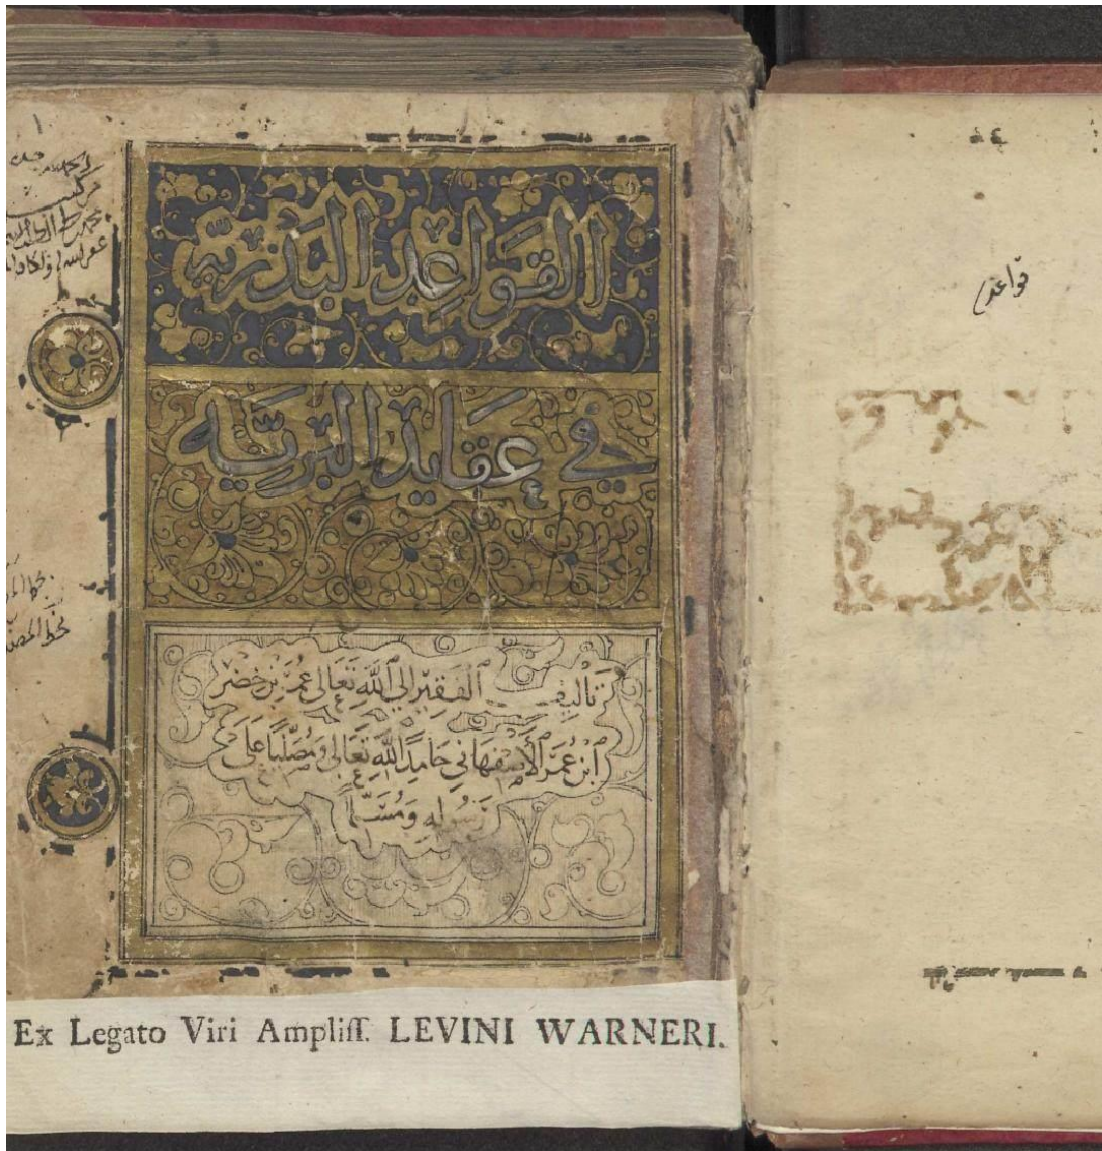 قواعد
القواعد البدرية
في عقايد البرية
تأليف الفقير الي الله تعالى عمر بن خضر
ابن عمر الأصفهاني حامدا لله تعالى ومصليا على
رسوله ومسلما
Ex Legato Viri Ampliſſ. LEVINI WARNERI.